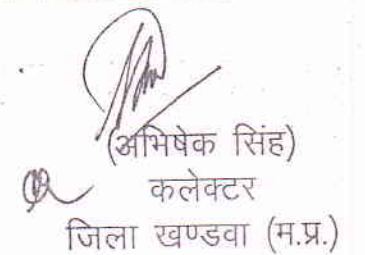 (अभिषेक सिंह)
कलेक्टर
जिला खण्डवा (म.प्र.)